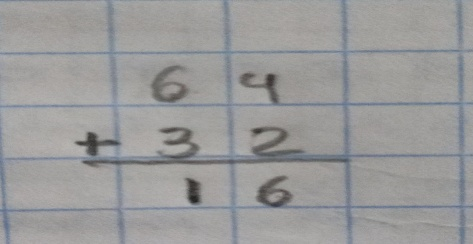 64
+ 32
16